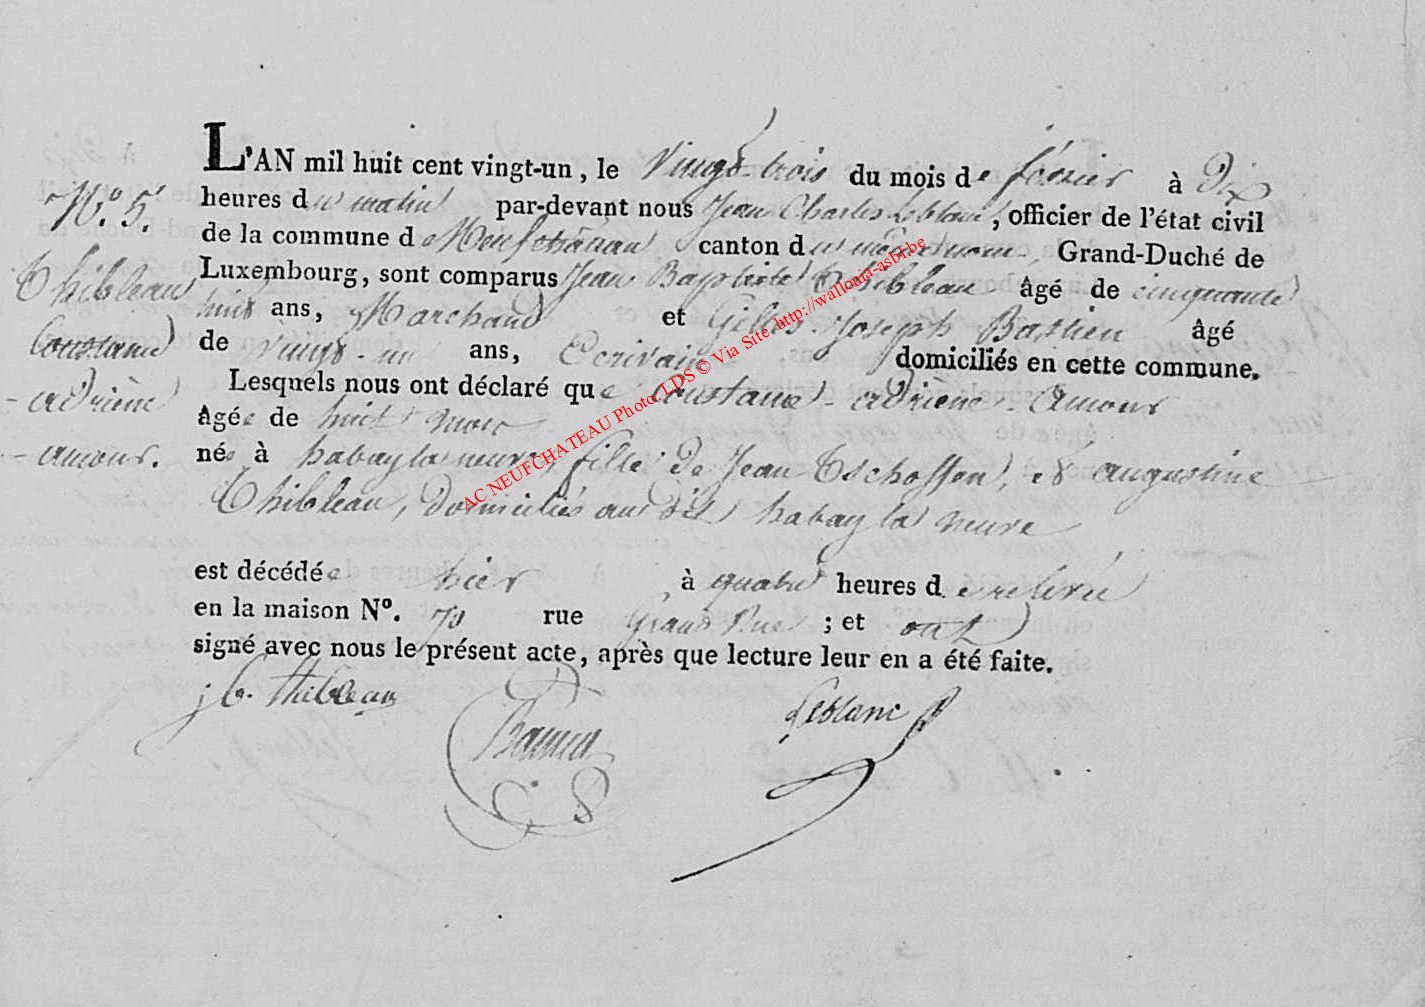 L'AN mil huit cent vingt-un, le Vingt-trois du mois de février à Dix
N.º 5.
heures du matin par-devant nous Jean Charles Leblanc, officier de l'état civil
de la commune de Neufchateau canton du même nom Grand-Duché de
Luxembourg, sont comparus Jean Baptiste Thibleau âgé de cinquante
huit ans, Marchand et Gilles Joseph Bastien âgé
de vingt-un ans, Ecrivain domiciliés en cette commune.
Lesquels nous ont déclaré que Constance - adriène - Amour
âgée de huit mois
née à habay la neuve, fille de Jean Tschoffen, et augustine
Thibleau, domiciliés au dit habay la neuve
est décédée hier à quatre heures de relevée
en la maison Nº. rue Grand Rue ; et ont
signé avec nous le présent acte, après que lecture leur en a été faite.
Thibleau
Constance
- adriène
- amour.
j b. thibleau
Leblanc
AC NEUFCHATEAU Photo LDS © Via Site http://wallonia-asbl.be